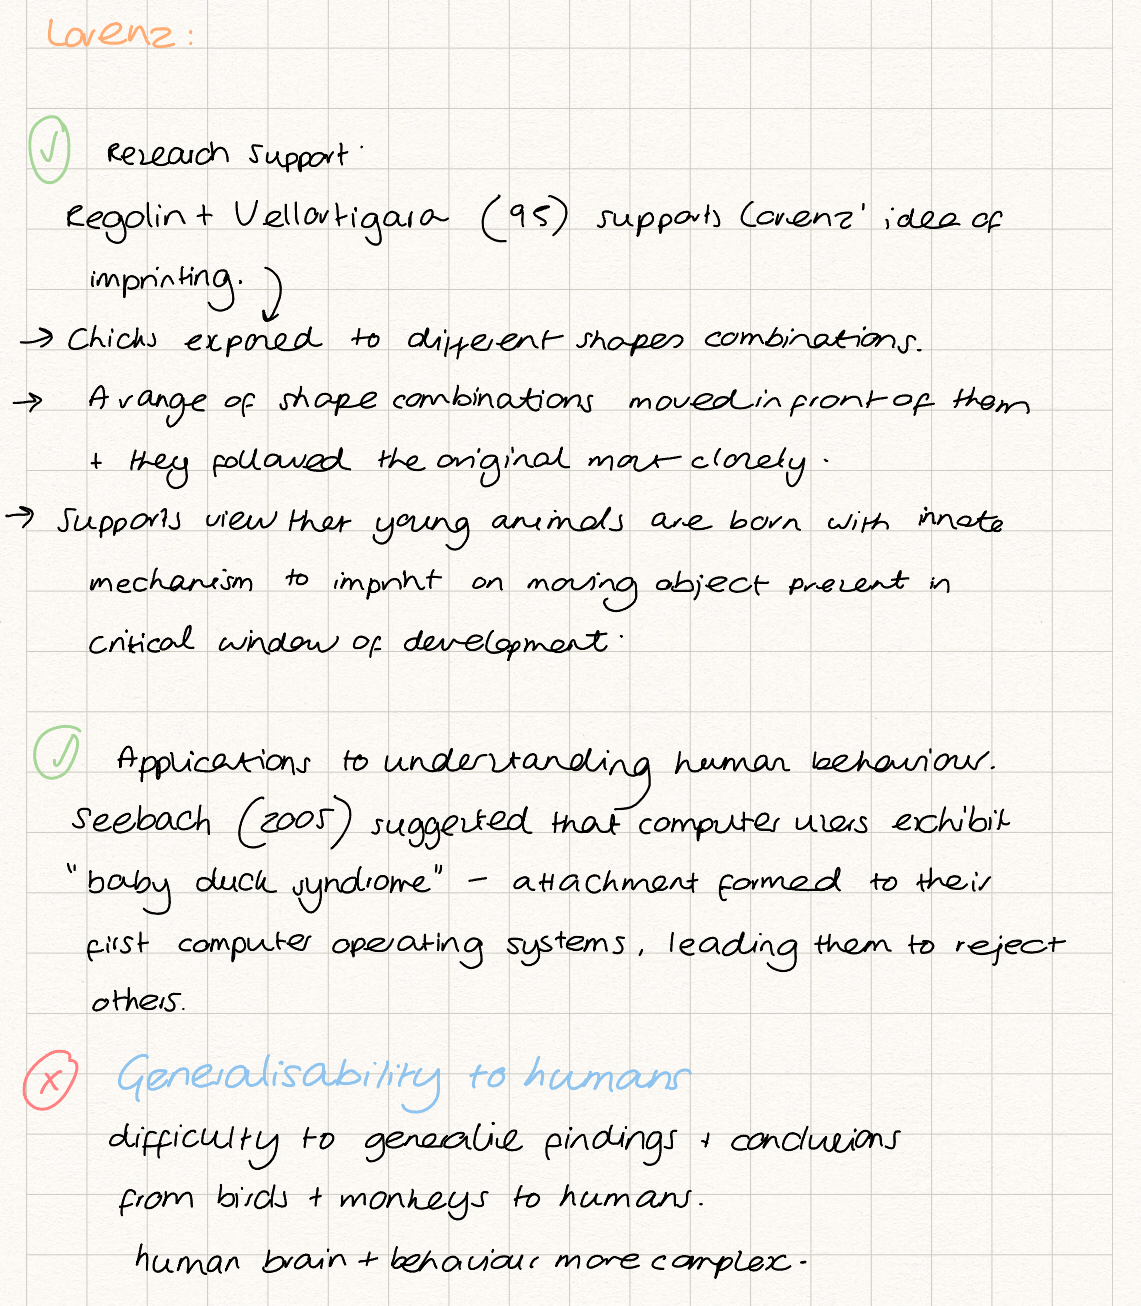 Lorenz:
Research support.
Regolin + Vellortigara (95) supports Lorenz' idea of
imprinting.
→ Chicks exposed to different shapes combinations.
→ A range of shape combinations moved in front of them
+ they followed the original most closely.
→ Supports view that young animals are born with innate
mechanism to imprint on moving object present in
critical window of development.
Applications to understanding human behaviour.
Seebach (2005) suggested that computer users exhibit
"baby duck syndrome" - attachment formed to their
first computer operating systems, leading them to reject
others.
Generalisability to humans
difficulty to generalise findings + conclusions
from birds + monkeys to humans.
human brain + behaviour more complex.